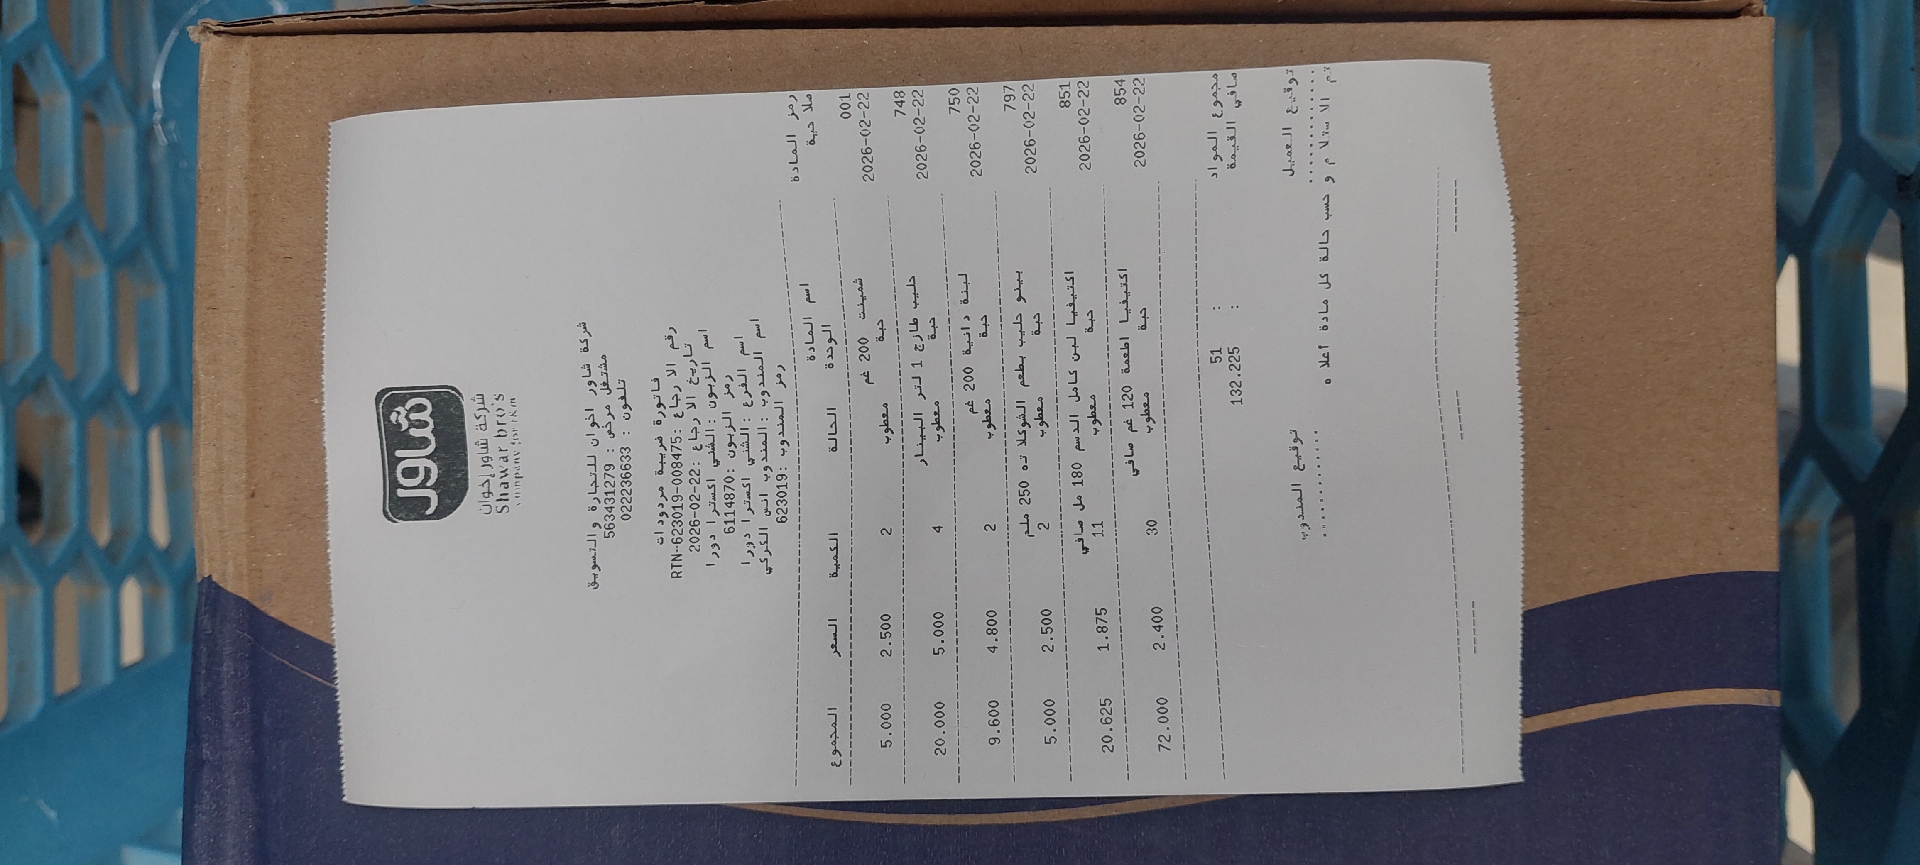 شاور
شركة شاور إخوان
Shawar bro's
شركة شاور اخوان للتجارة والتسويق
مشتغل مرخص : 563431279
تلفون : 022236633
فاتورة ضريبية مردودات
رقم الارجاع :RTN-623019-08475
تاريخ الارجاع :2026-02-22
اسم الزبون :الشني اكسترا دورا
رمز الزبون :6114870
اسم الفرع :الشني اكسترا دورا
اسم المندوب :المندوب انس الكركي
رمز المندوب :623019
رمز المادة اسم المادة
ملاحية الوحدة الحالة الكمية السعر المجموع
001 شمينت 200 غم
2026-02-22 حبة معطوب 2 2.500 5.000
748 حليب طازج 1 لتر البينار
2026-02-22 حبة معطوب 4 5.000 20.000
750 لبنة دانية 200 غم
2026-02-22 حبة معطوب 2 4.800 9.600
797 بينو حليب بطعم الشوكلاته 250 ملم
2026-02-22 حبة معطوب 2 2.500 5.000
851 اكتيفيا لبن كامل الدسم 180 مل صافي
2026-02-22 حبة معطوب 11 1.875 20.625
854 اكتيفيا اطعمة 120 غم صافي
2026-02-22 حبة معطوب 30 2.400 72.000
مجموع المواد : 51
صافي القيمة : 132.225
توقيع العميل توقيع المندوب
تم الاستلام و حسب حالة كل مادة أعلاه